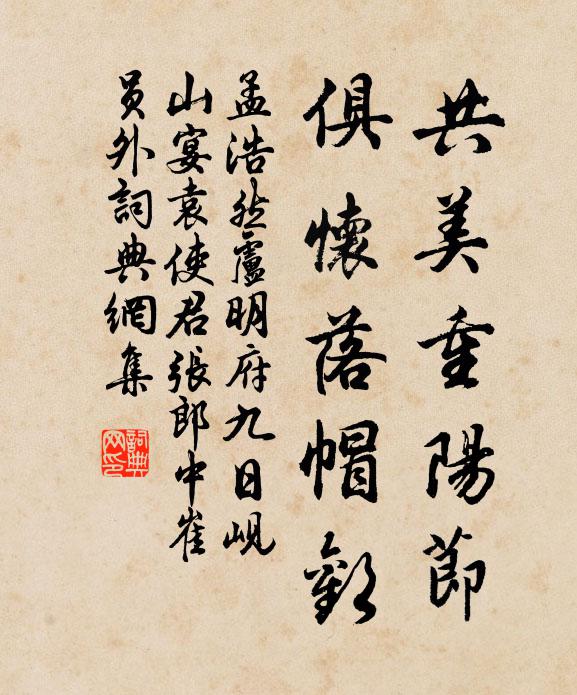 共美重陽節
俱懷落帽歡
孟浩然盧明府九日峴
山宴袁使君張郎中崔
員外詞典網集
詞典网印